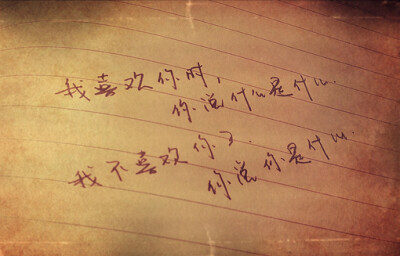 我喜欢你时,
你说什么是什么.
我不喜欢你了.
你说你是什么.